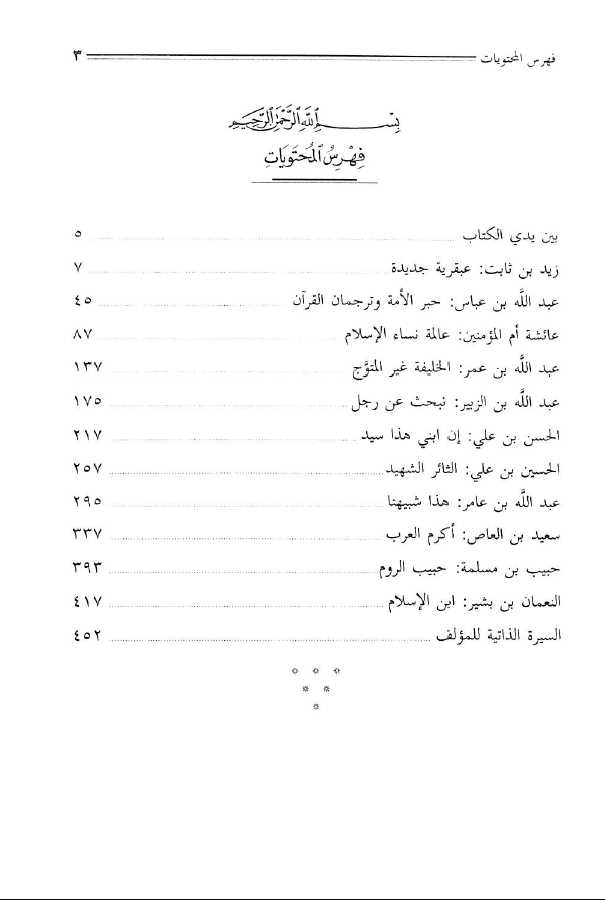 فهرس المحتويات ٣
بِسْمِ اللَّهِ الرَّحْمَنِ الرَّحِيمِ
فِهْرِسُ المُحْتَوَيَاتِ
بين يدي الكتاب ٥
زيد بن ثابت: عبقرية جديدة ٧
عبد اللَّه بن عباس: حبر الأمة وترجمان القرآن ٤٥
عائشة أم المؤمنين: عالمة نساء الإسلام ٨٧
عبد اللَّه بن عمر: الخليفة غير المتوَّج ١٣٧
عبد اللَّه بن الزبير: نبحث عن رجل ١٧٥
الحسن بن علي: إن ابني هذا سيد ٢١٧
الحسين بن علي: الثائر الشهيد ٢٥٧
عبد اللَّه بن عامر: هذا شبيهنا ٢٩٥
سعيد بن العاص: أكرم العرب ٣٣٧
حبيب بن مسلمة: حبيب الروم ٣٩٣
النعمان بن بشير: ابن الإسلام ٤١٧
السيرة الذاتية للمؤلف ٤٥٢